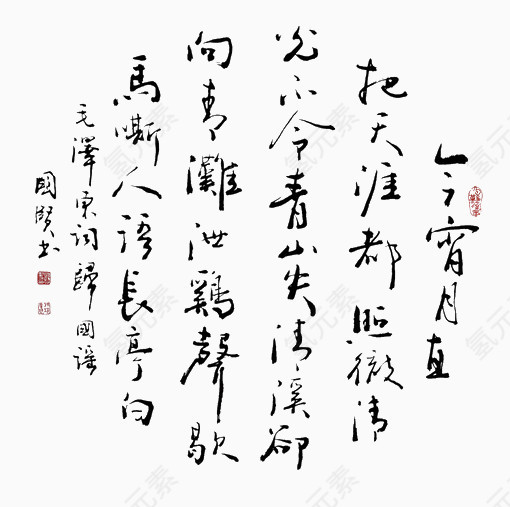 今宵月直
把天涯都照彻清
光不令青山失清溪却
向青滩泄鸡声歇
馬嘶人语長亭白
毛澤東词歸國謡
國贤书
氢元素